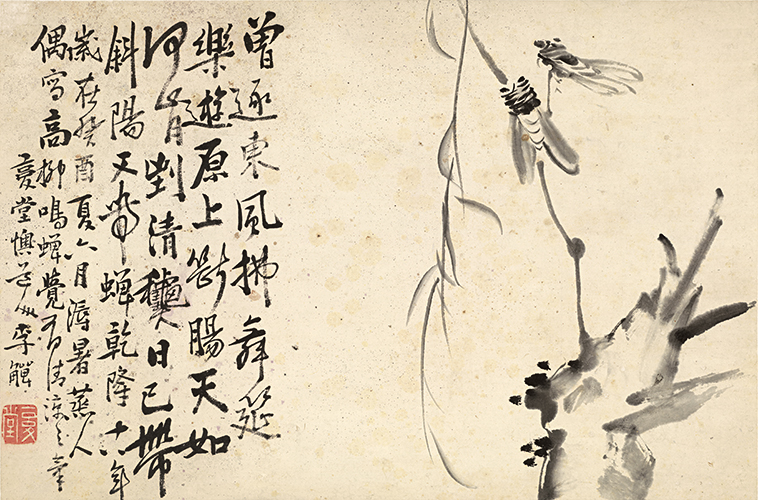 曾逐東風拂舞筵
樂遊原上斷腸天如
何肯到清龝日已帶
斜陽又帶蟬乾隆十八年
歲在癸酉夏六月溽暑蒸人
偶寫高柳鳴蟬覺有清涼之意
复堂懊道人李鱓